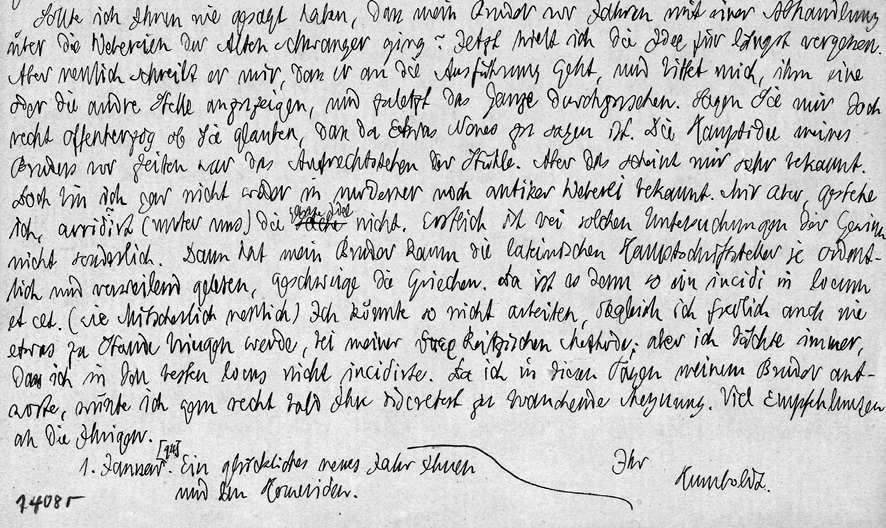 Sollte ich Ihnen nie gesagt haben, dass mein Bruder vor Jahren mit einer Abhandlung
über die Webereien der Alten schwanger ging? Jetzt hielt ich die Idee für längst vergessen.
Aber neulich schreibt er mir, dass er an die Ausführung geht, und bittet mich, ihm eine
oder die andre Stelle anzuzeigen, und zuletzt das Ganze durchzusehen. Sagen Sie mir doch
recht offenherzig ob Sie glauben, dass da etwas Neues zu sagen ist. Die Hauptidee meines
Bruders vor Zeiten war das Aufrechtstehen der Stühle. Aber das scheint mir sehr bekannt.
Doch bin ich gar nicht weder in moderner noch antiker Weberei bekannt. Mir aber, gestehe
ich, arridirt (unter uns) die ganze Idee nicht. Erstlich ist bei solchen Untersuchungen der Gewinn
nicht sonderlich. Dann hat mein Bruder kaum die lateinischen Hauptschriftsteller je ordent-
lich und verweilend gelesen, geschweige die Griechen. Da ist es denn so ein incidi in locum
et cet. (wie Mitscherlich neulich) Ich könnte so nicht arbeiten, obgleich ich freilich auch nie
etwas zu Stande bringen werde, bei meiner Methode; aber ich dächte immer,
dass ich in den besten locus nicht incidirte. Da ich in diesen Tagen meinem Bruder ant-
worte, wüsste ich gern recht bald Ihre discretest zu brauchende Meynung. Viel Empfehlungen
an die Ihrigen.
1. Januar. [94] Ein glückliches neues Jahr Ihnen
und den Ihr
Humboldt.
14085